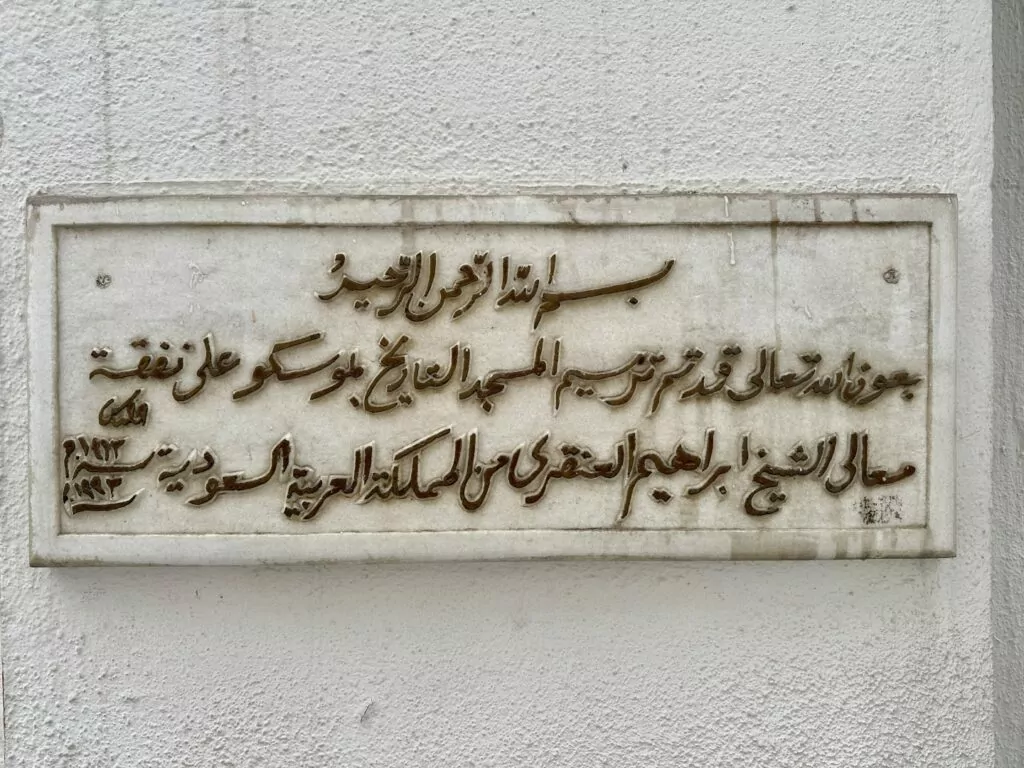 بسم الله الرحمن الرحيم
بعون الله تعالى قد تم ترميم المسجد التاريخ بموسكو على نفقة
معالى الشيخ ابراهيم العنقرى من المملكة العربية السعودية سنة
١٩٩٣م